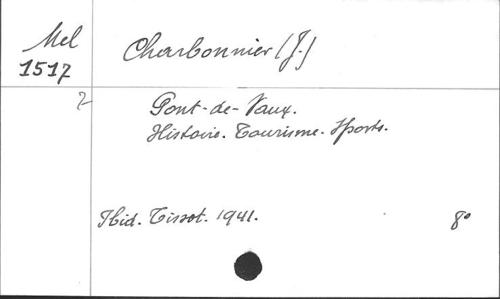 Mel
1517
2
Charbonnier (J.)
Pont-de-Vaux.
Histoire. Tourisme. Sports.
Ibid. Tissot. 1941.
8°